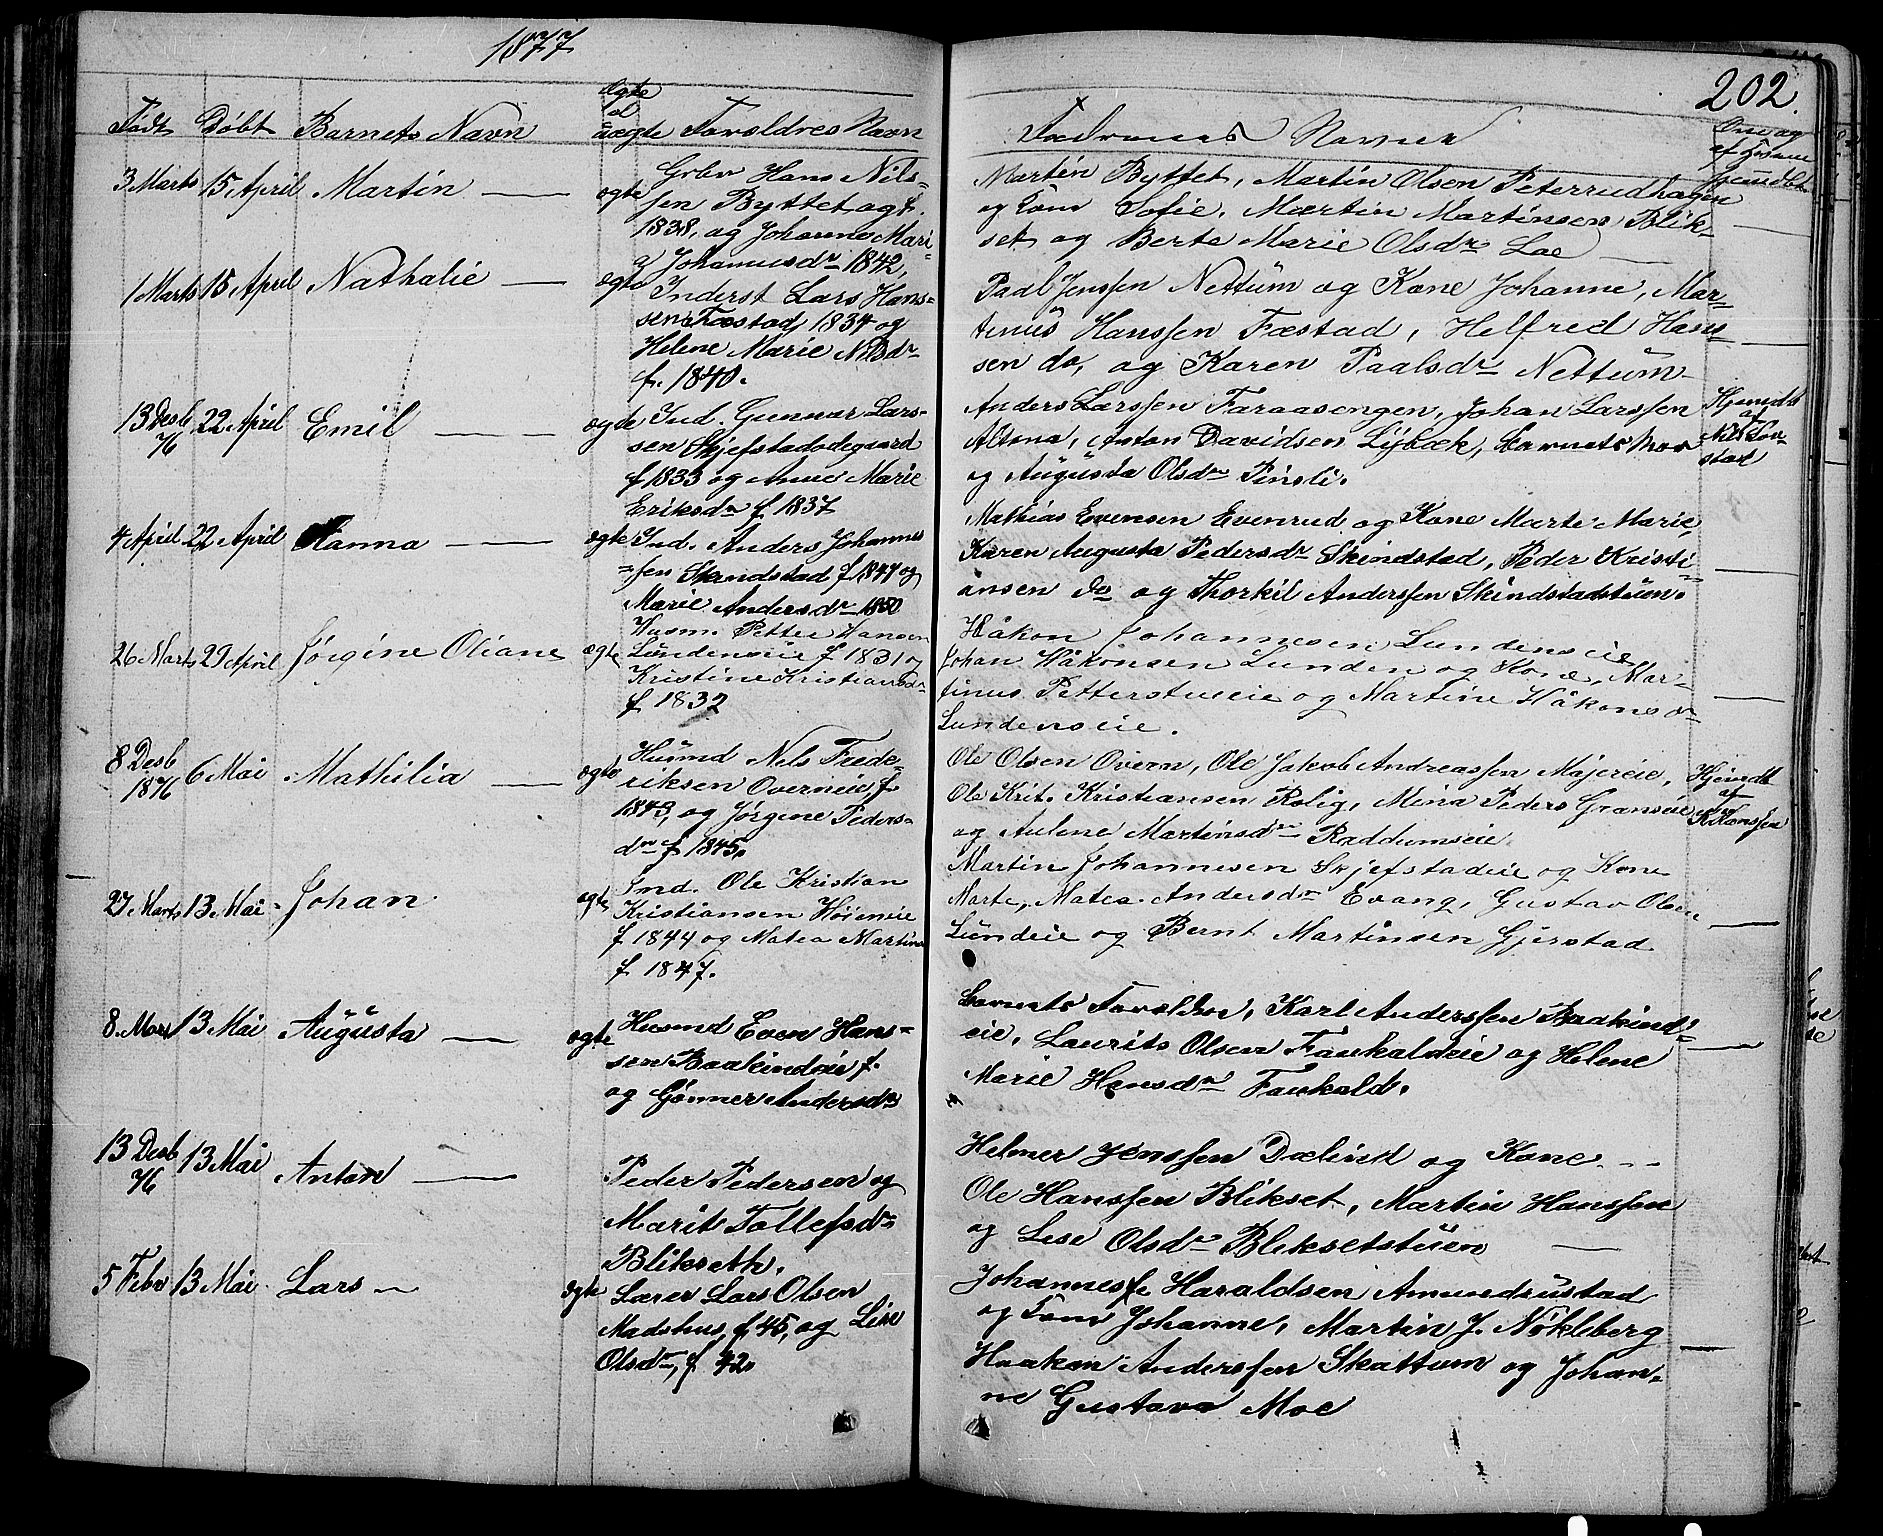 1877
202.
Født Døbt Barnets Navn ægte el uægte Forældres Navn
Faddernes Navne
Om og af hvem hjemdbt
3 Marts 15 April Martin ægte Grbr Hans Nils-
sen Byttet og f.
1838, og Johanne Mari-
a Johannesdr 1842,
Martin Byttet, Martin Olsen Peterrudhagen
og Kone Sofie, Martin Martinsen Blik-
set og Berte Marie Olsdr Loe
1 Marts 15 April Nathalie ægte
Inderst Lars Hans-
sen Fæstad, 1834 og
Helene Marie Nilsdr
f. 1840.
Paal Jenssen Nettum og Kone Johanne, Mar-
tinus Hanssen Fæstad, Helfred Hans-
sen do, og Karen Paalsdr Nettum
13 Desb 76 22 April Emil ægte Ind. Gunnar Lars-
sen Skjefstadødegaard
f 1833 og Anne Marie
Eriksdr f. 1837
Anders Larssen Faraasengen, Johan Larssen
Altona, Anton Davidsen Lybæk, barnets Mor
og Augusta Olsdr Pinsli.
Hjemdbt
af
Nils Lov-
stad
4 April 22 April Hanna ægte Ind. Anders Johannes
=sen Skindstad f. 1847 og
Marie Andersdr 1850
Mathias Evensen Evenrud og Kone Marte Marie,
Karen Augusta Pedersdr Skindstad, Peder Kristi-
ansen do og Thorkil Anderssen Skindstadstuen.
26 Marts 29 April Jørgine Oliane ægte Husm. Petter Hansen
Lundenseie f 1831 og
Kristine Kristiansdr
f 1832
Håkon Johannesen Lundenseie
Johan Håkonsen Lunden og Kone, Mar-
tinus Petterstueeie og Martine Håkonsdr
Lundenseie.
8 Desb 1876 6 Mai Mathilia ægte Husmd Nils Frede-
riksen Overneie f
1843, og Jørgine Peders-
dr f 1845.
Ole Olsen Overn, Ole Jakob Andreassen Majereie,
Ole Krit. Kristiansen Rolig, Mina Peders Granseie
og Aulene Martinsdr Raddumseie
Hjemdbt
af
K. Hanssen
27 Marts 13 Mai Johan ægte Ind. Ole Kristian
Kristiansen Høieneie
f 1844 og Matea Martins
f 1847.
Martin Johannesen Skjefstadeie og Kone
Marte, Matea Andersdr Evang, Gustav Olsen
Lundeie og Bernt Martinsen Gjerstad
8 Mars 13 Mai Augusta ægte Husmd Even Hans-
sen Baakindeie f.
og Gunner Andersdr
barnets Forældre, Karl Anderssen Baakind-
eie, Laurits Olsen Faukaldeie og Helene
Marie Hansdr Faukald.
13 Desb 76 13 Mai Anton
Peder Pedersen og
Marit Tollefsdr
Blikseth.
Helmer Jenssen Dælind og Kone
Ole Hanssen Blikset, Martin Hanssen
og Lise Olsdr Bliksetstuen
5 Febr 13 Mai Lars ægte Lærer Lars Olsen
Madshus, f. 45, og Lise
Olsdr, f. 42.
Johannes Haraldsen Amundrustad
og Kone Johanne, Martin J. Nøkleberg
Haakon Anderssen Skattum og Johan-
ne Gustava Moe